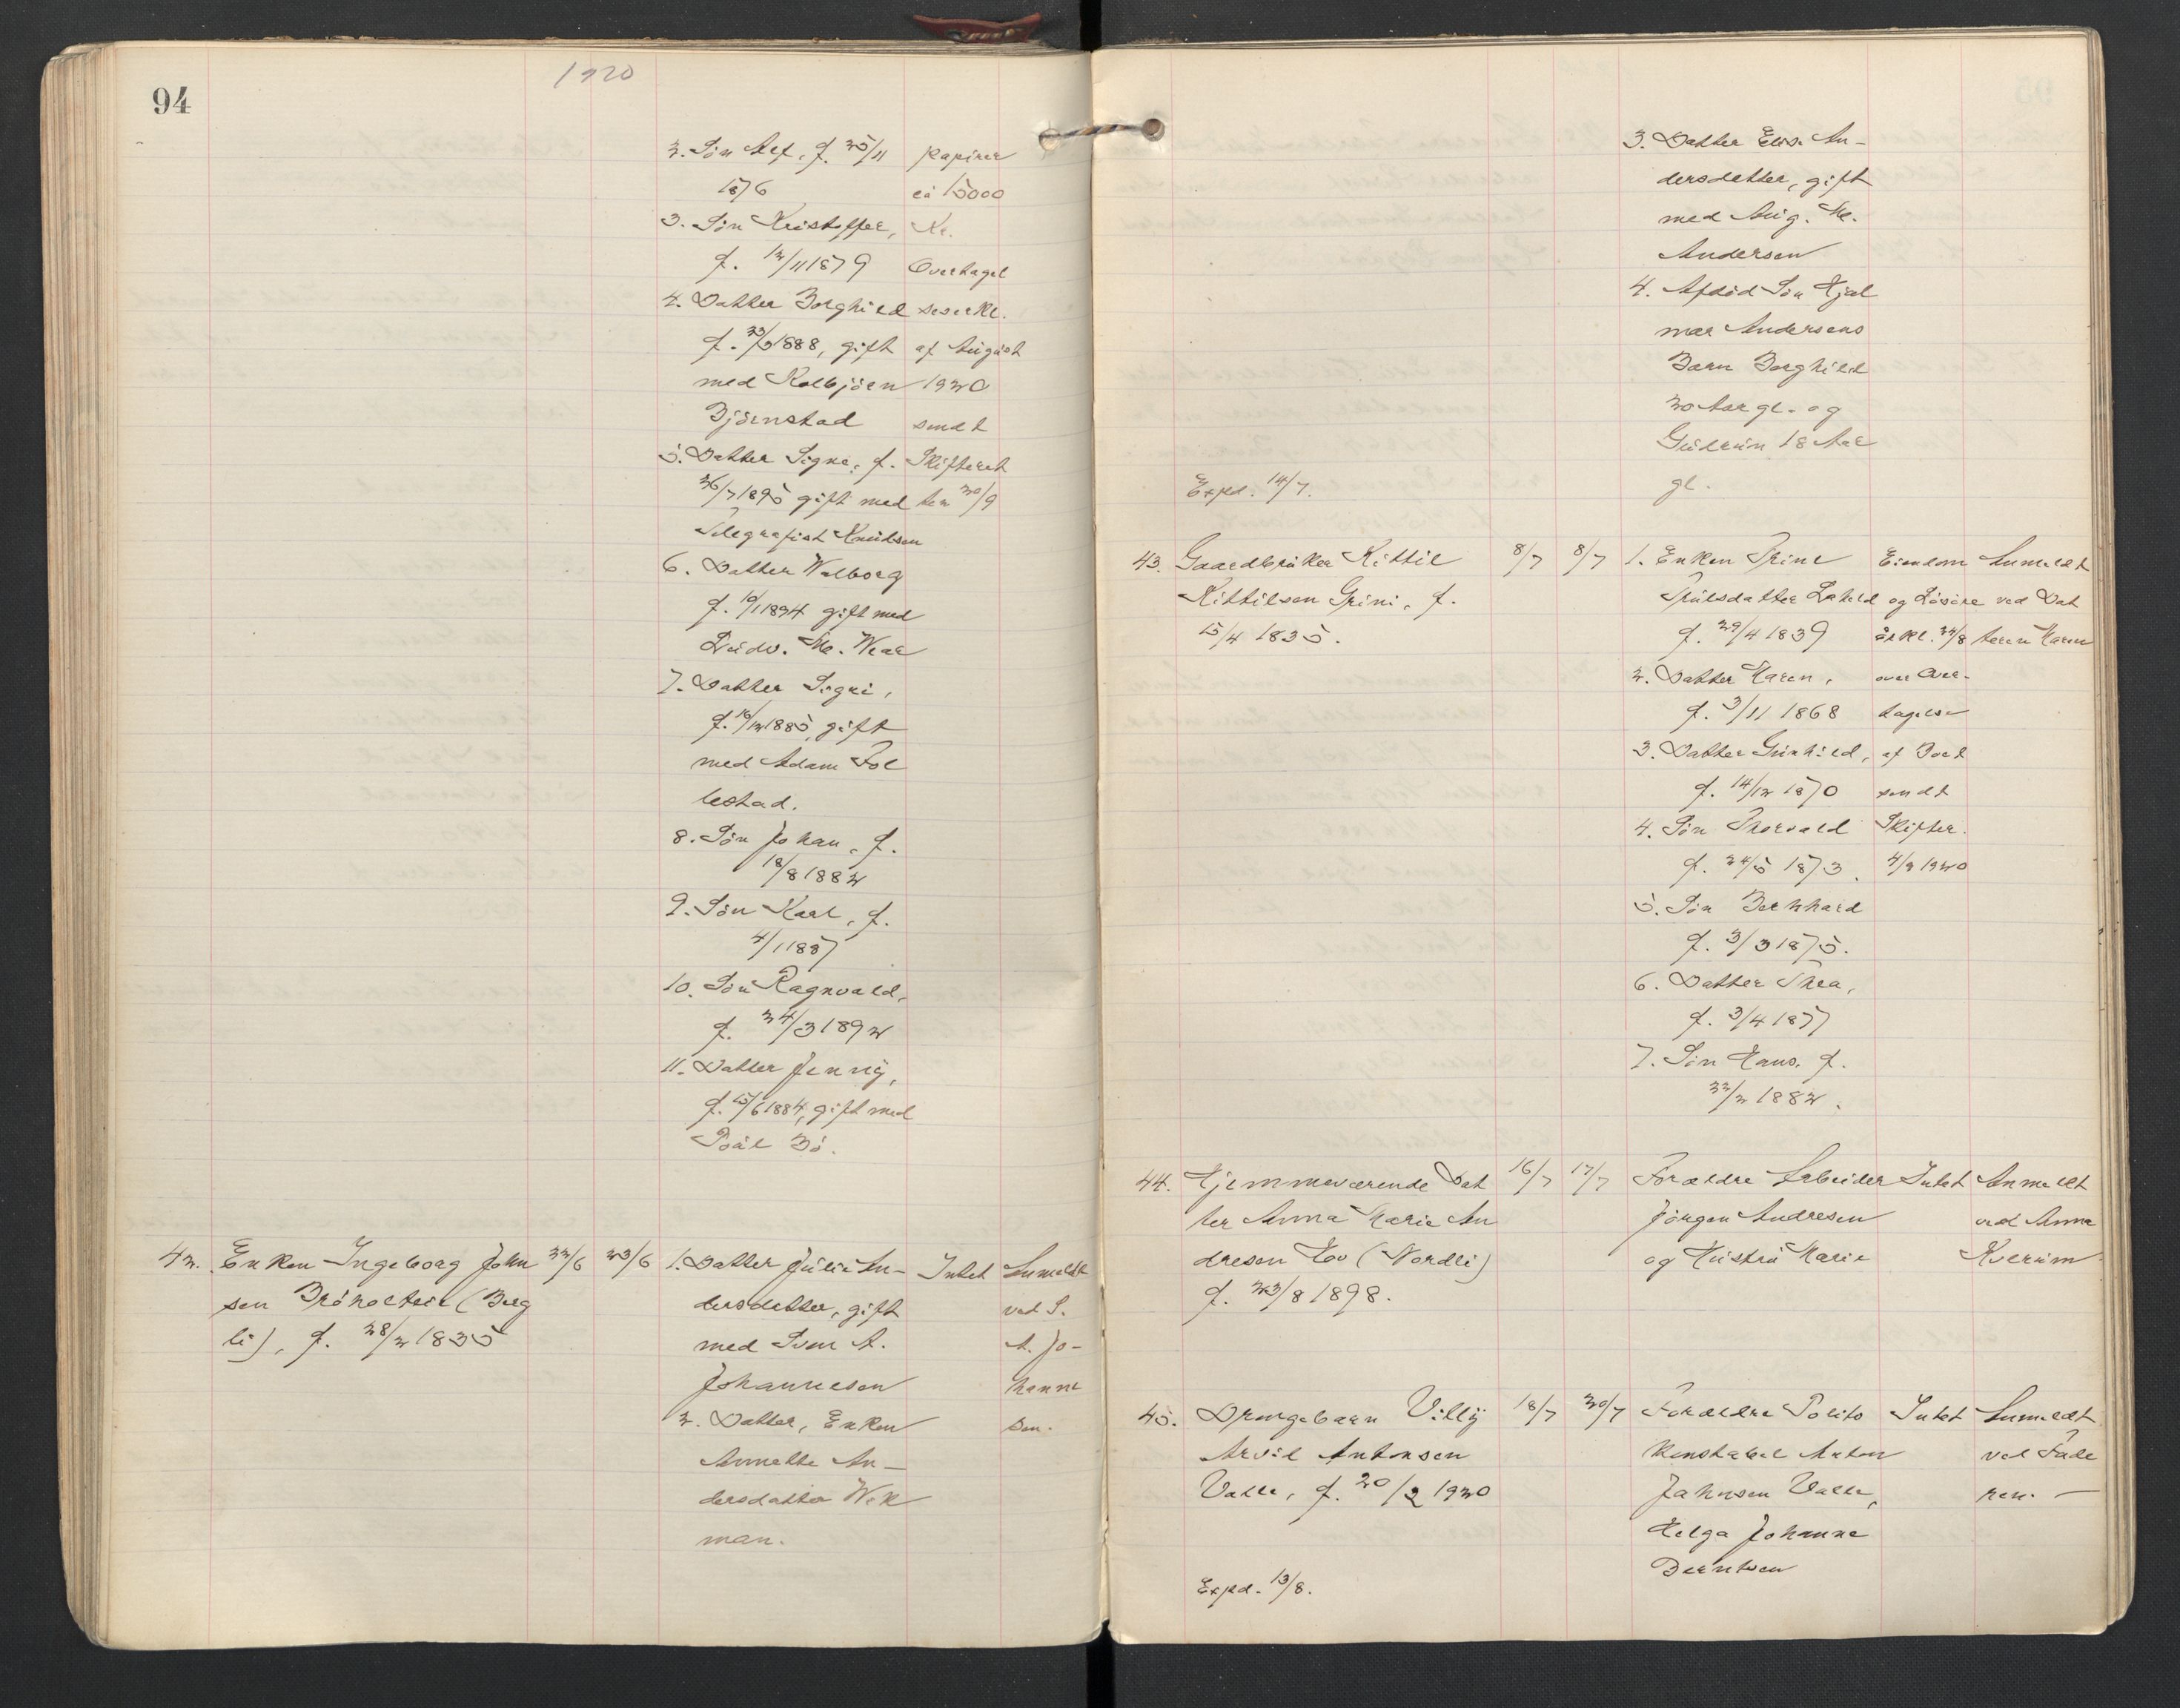 94
1920
2. Søn Alf, f. 25/11
1876
3. Søn Kristoffer,
f. 12/11 1879
4. Datter Borghild
f. 23/3 1888, gift
med Kolbjørn
Bjørnstad
5. Datter Signe, f.
26/7 1895 gift med
Telegrafist Knudsen
6. Datter Walborg
f. 10/1 1894 gift med
Ludv. M. Wear
7. Datter Sigri,
f. 16/12 1885, gift
med Adam Fol
lestad.
8. Søn Johan, f.
18/8 1882
9. Søn Karl, f.
4/1 1887
10. Søn Ragnvald,
f. 24/3 1892
11. Datter Jenny,
f. 15/6 1884, gift med
Paal Bø.
papirer
ca 15000
Kr.
Overtagel
seserkl.
af August
1920
sendt
Skifteret
ten 20/9
42. Enken Ingeborg John
sen Brönoltrie (Berg
li), f. 28/2 1835
22/6 23/6
1. Datter Julie An-
dersdatter, gift
med Sven A.
Johannesen
2. Datter, Enken
Annette An-
dersdatter Wek
man.
Intet
Anmeldt
ved S.
A. Jo-
hanne
sen.
3. Datter Elis. An-
dersdatter, gift
med Aug. M.
Andersen
4. Afdød Søn Hjal
mar Andersens
Barn Borghild
20 Aar gl. og
Gudrun 18 Aar
gl.
Exped. 14/7.
43. Gaardbruker Kittil
Kittilsen Grini, f.
15/4 1835.
8/7 8/7
1. Enken Trine
Trulsdatter
f. 29/4 1839
2. Datter Karen,
f. 3/11 1868
3. Datter Gunhild,
f. 14/12 1870
4. Søn Thorvald
f. 24/5 1873.
5. Søn Bernhard
f. 3/3 1875.
6. Datter Thea,
f. 3/4 1877
7. Søn Hans, f.
22/2 1882.
Eiendom
og Løsøre
erkl. 24/8
over Over-
tagelse
af Boet
sendt
Skifter.
4/9 1920
Anmeldt
ved Dat
teren Karen
44. Hjemmeværende Dat
ter Anna Marie An
dresen Hov (Nordli)
f. 23/8 1898.
16/7 17/7
Forældre Arbeider
Jørgen Andresen
og Hustru Marie
Intet
Anmeldt
ved Anna
Kverum
45. Drengebarn Villy
Arvid Antonsen
Valle, f. 20/2 1920
18/7 20/7
Forældre Politi
konstabel Anton
Jahnsen Valle,
Helga Johanne
Berntsen
Intet
Anmeldt
ved Fade
ren. —
Exped. 13/8.